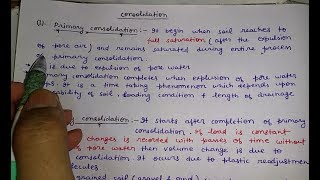 consolidation
(1)- Primary consolidation:- It begin when soil reaches to
full saturation (after the expulsion
of pore air) and remains saturated during entire process
of primary consolidation.
is due to expulsion of pore water
primary consolidation completes when explusion of pore water
It is a time taking phenomenon which depends upon
ability of soil, loading condition & length of drainage
consolidation:- It starts after completion of primary
consolidation. If load is constant
changes is recorded with passes of time without
pore water then volume change is due to
consolidation. It occurs due to plastic readjustment
molecules.
grained soil (gravel & sand)